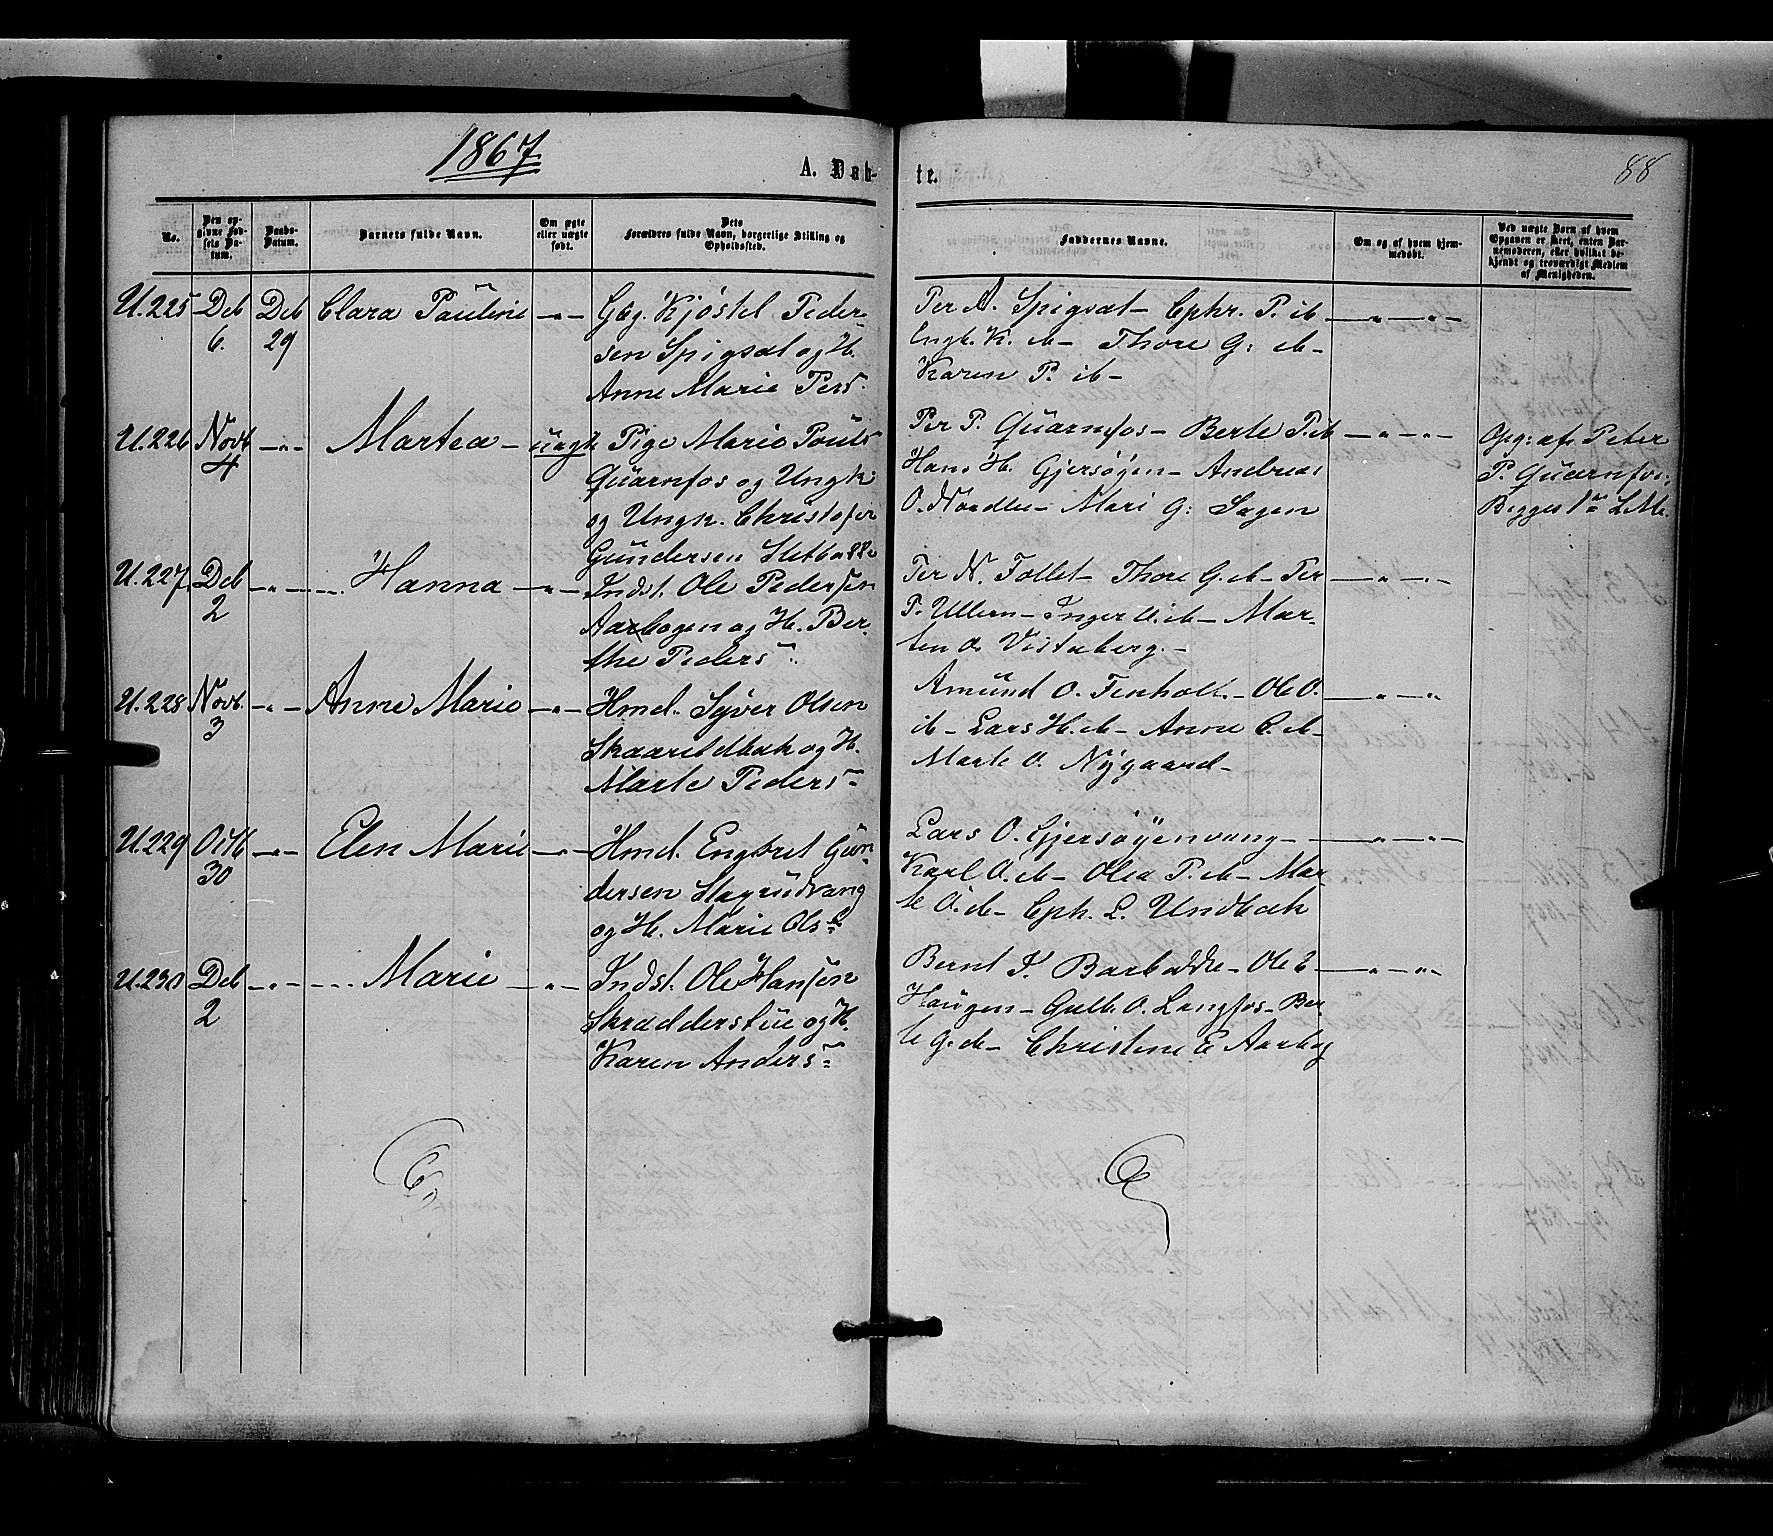 1867
A. Døb-
te.
88
No.
Den op-
givne Fød-
sels Da-
tum.
Daabs-
Datum.
Barnets fulde Navn.
Om ægte
eller uægte
født.
Dets
Forældres fulde Navn, borgerlige Stilling og
Opholdssted.
Faddernes Navne.
Om og af hvem hjem-
medøbt.
Ved uægte Børn af hvem
Opgaven er skeet, enten Bar-
nemoderen, eller hvilket be-
kjendt og troværdigt Medlem
af Menigheden.
U.225 Deb 6. Deb 29 Clara Pauline -"-
Gbg. Kjøstel Peder-
sen Spigsæt og H.
Anne Marie Pers.
Per A. Spigsæt - Ephr. P. ib -"-"-
Engb. K. ib - Thore G: ib -
Karen P. ib -
U.226 Novb 4 -"- Martea - uægte
Pige Marie Pouls
Quarnfos og Ungk:
og Ungk. Christofer
Gundersen
Per P. Quarnfos - Berte P. ib -"-"-
Hans H. Gjersøyen - Andreas
O. Nordlie - Mari G: Sagen
Opg: af Peter
P. Quarnfos,
Begges 1ste L.M.
U.227. Deb 2 -"- Hanna -"-
Indst. Ole Pedersen
Aarbogen og H. Ber-
the Peders
Per N. Tollet - Thore G. ib - Per -"-"-
P. Ullern - Inger O. ib - Mar-
ten O. Vestaberg. -
U.228 Novb. 3 -"- Anne Marie -"-
Hmd. Syver Olsen
Skaarildbak og H.
Marte Peders
Amund O. Tenholt - Ole O. -"-"
ib - Lars H. ib - Anne C. ib -
Marte O. Nygaard -
U.229 Octb 30 -"- Elen Marie -"-
Hmd. Engbret Gun-
dersen Slagsudvang
og H. Marie Ols
Lars O. Gjersøyenvang -"-"-
Karl O. ib - Olea P. ib - Mar-
te O. ib - Eph. L. Undbak
U.230 Deb 2 -"- Marie -"-
Indst. Ole Hansen
Skradderstue og H.
Karen Anders
Bernt I. Barbakke - Ole E -"-"-
Haugen - Gulb. O. Langfos - Ber-
te G. ib - Christine E Aarbog